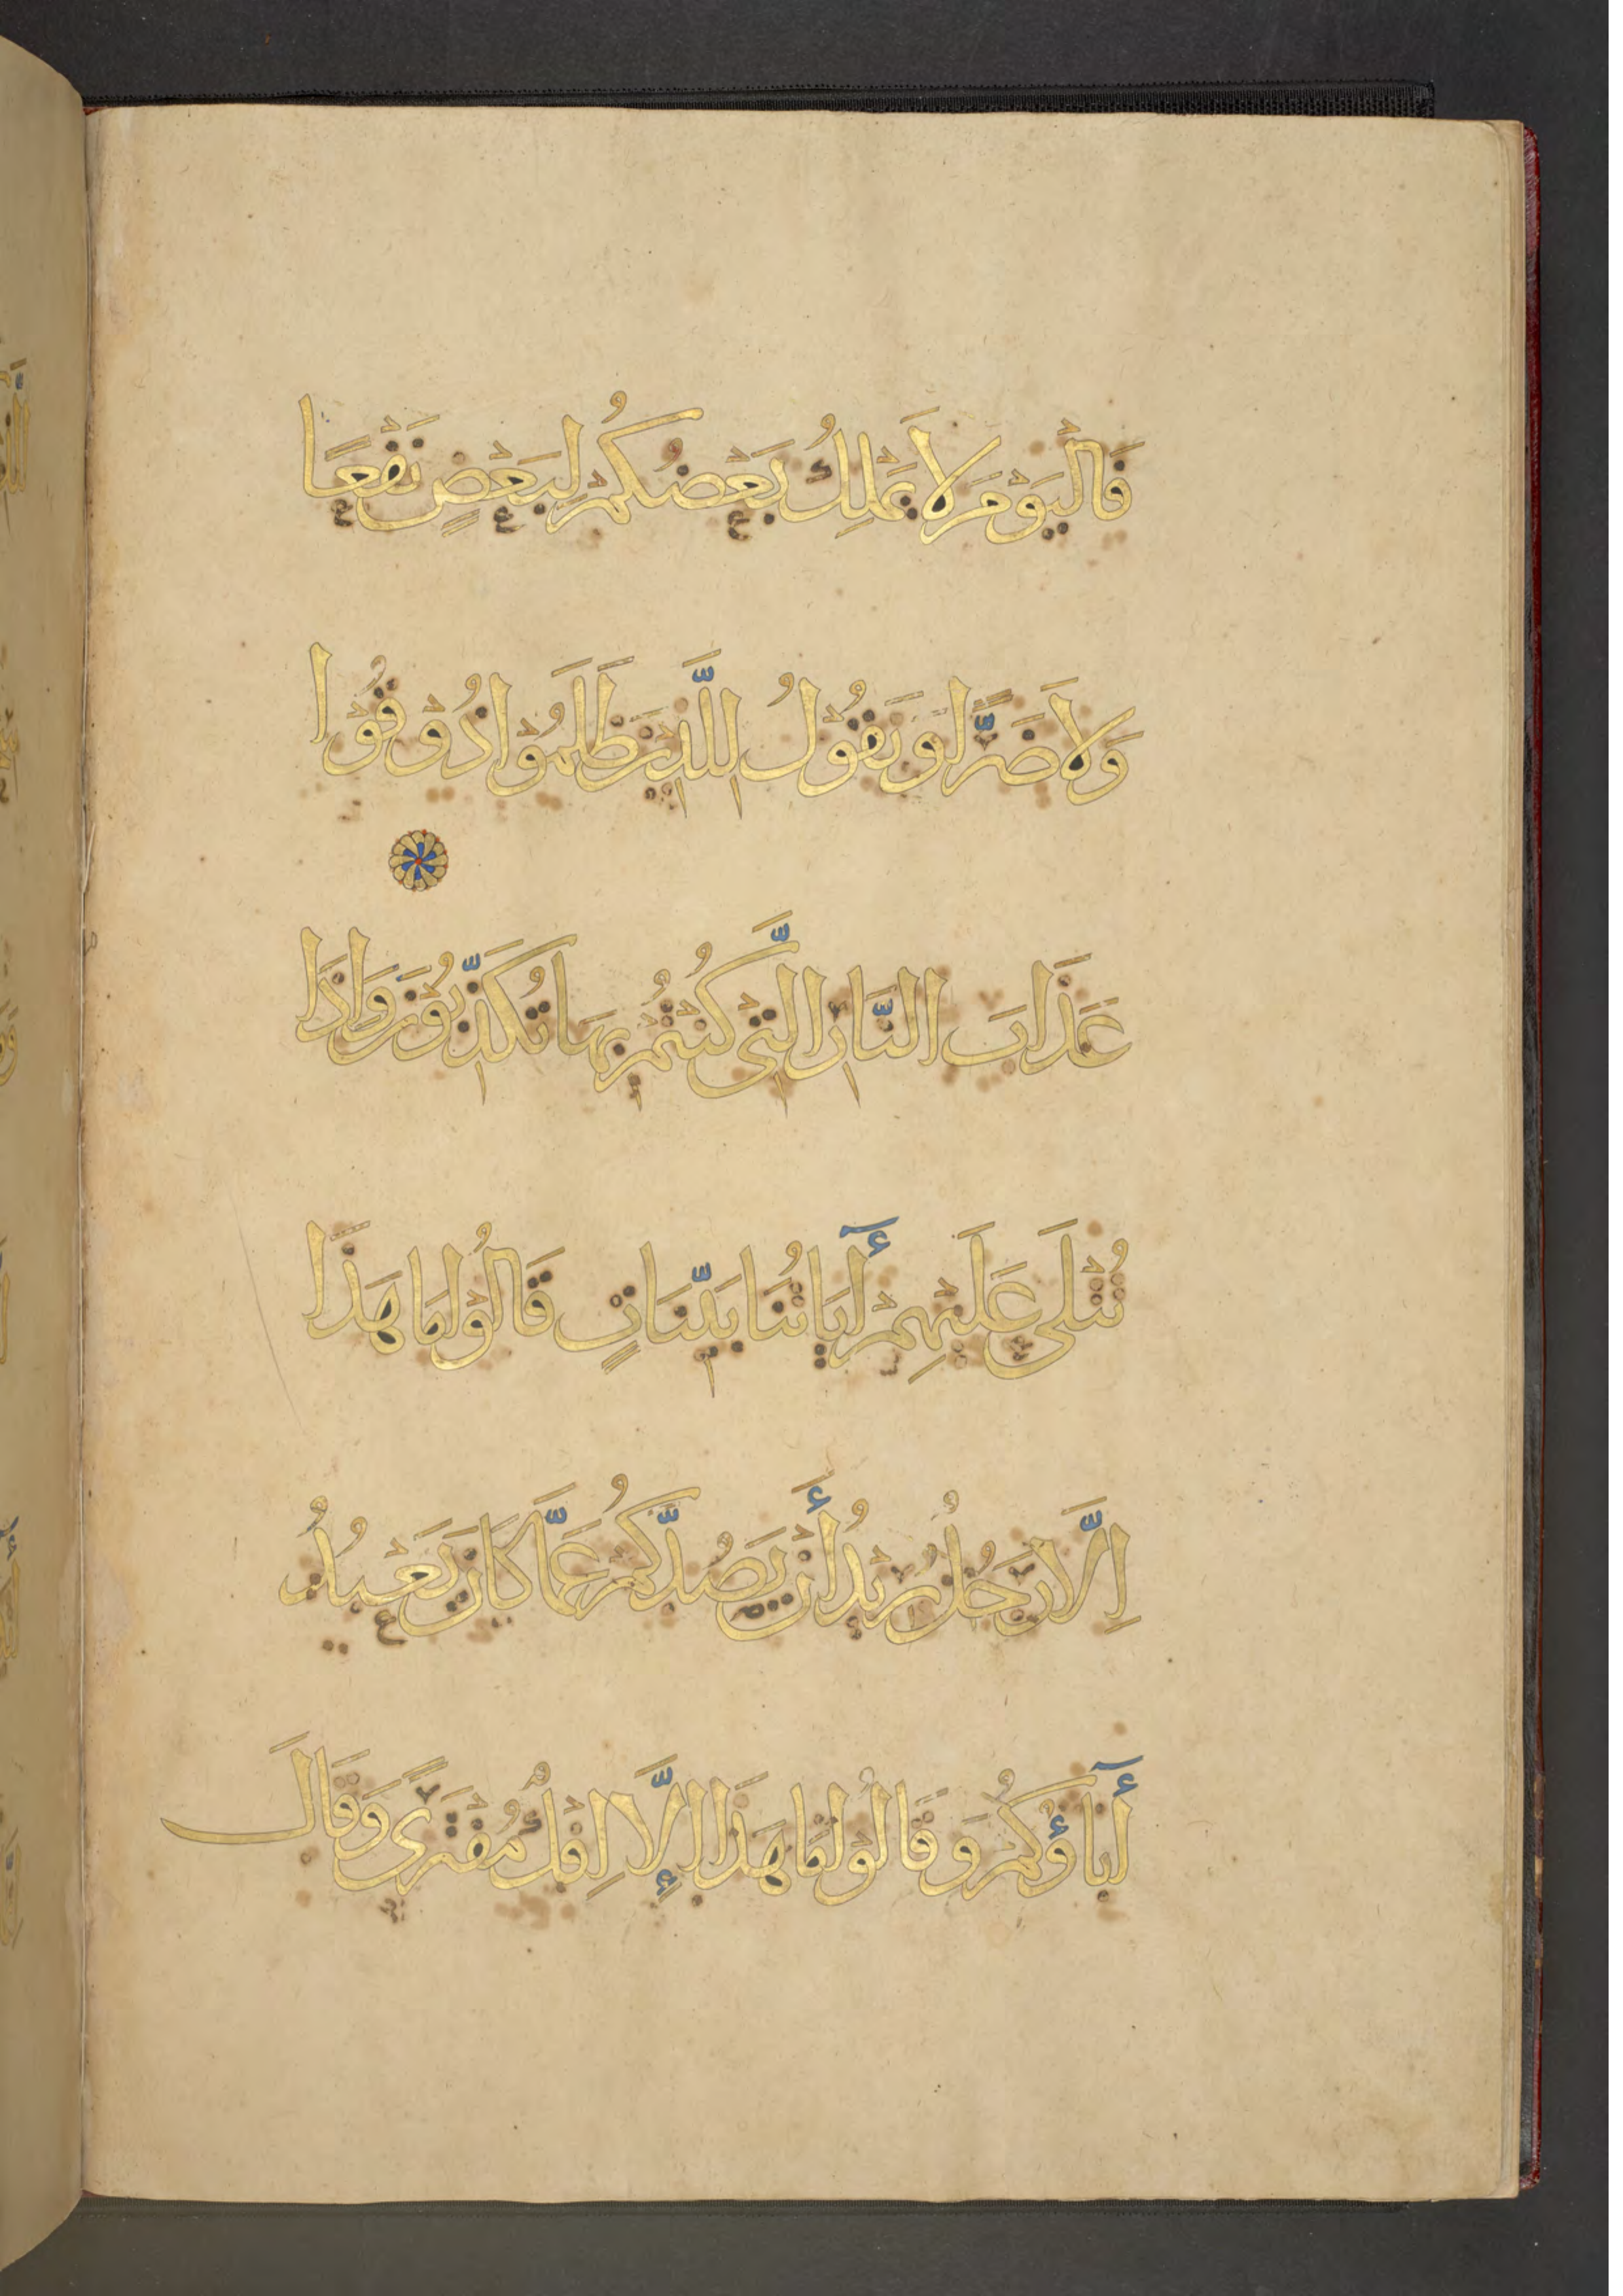 فَالْيَوْمَ لَا يَمْلِكُ بَعْضُكُمْ لِبَعْضٍ نَفْعًا
وَلَا ضَرًّا وَنَقُوْلُ لِلَّذِيْنَ ظَلَمُوْا ذُوْقُوْا
عَذَابَ النَّارِ الَّتِي كُنْتُمْ بِهَا تُكَذِّبُوْنَ وَاِذَا
تُتْلَى عَلَيْهِمْ أٓيَاتُنَا بَيِّنَاتٍ قَالُوْا مَا هَذَا
اِلَّا رَجُلٌ يُرِيْدُ أَنْ يَصُدَّكُمْ عَمَّا كَانَ يَعْبُدُ
أٓبَاؤُكُمْ وَقَالُوْا مَا هَذَا إِلَّا اِفْكٌ مُفْتَرًى وَقَالَ